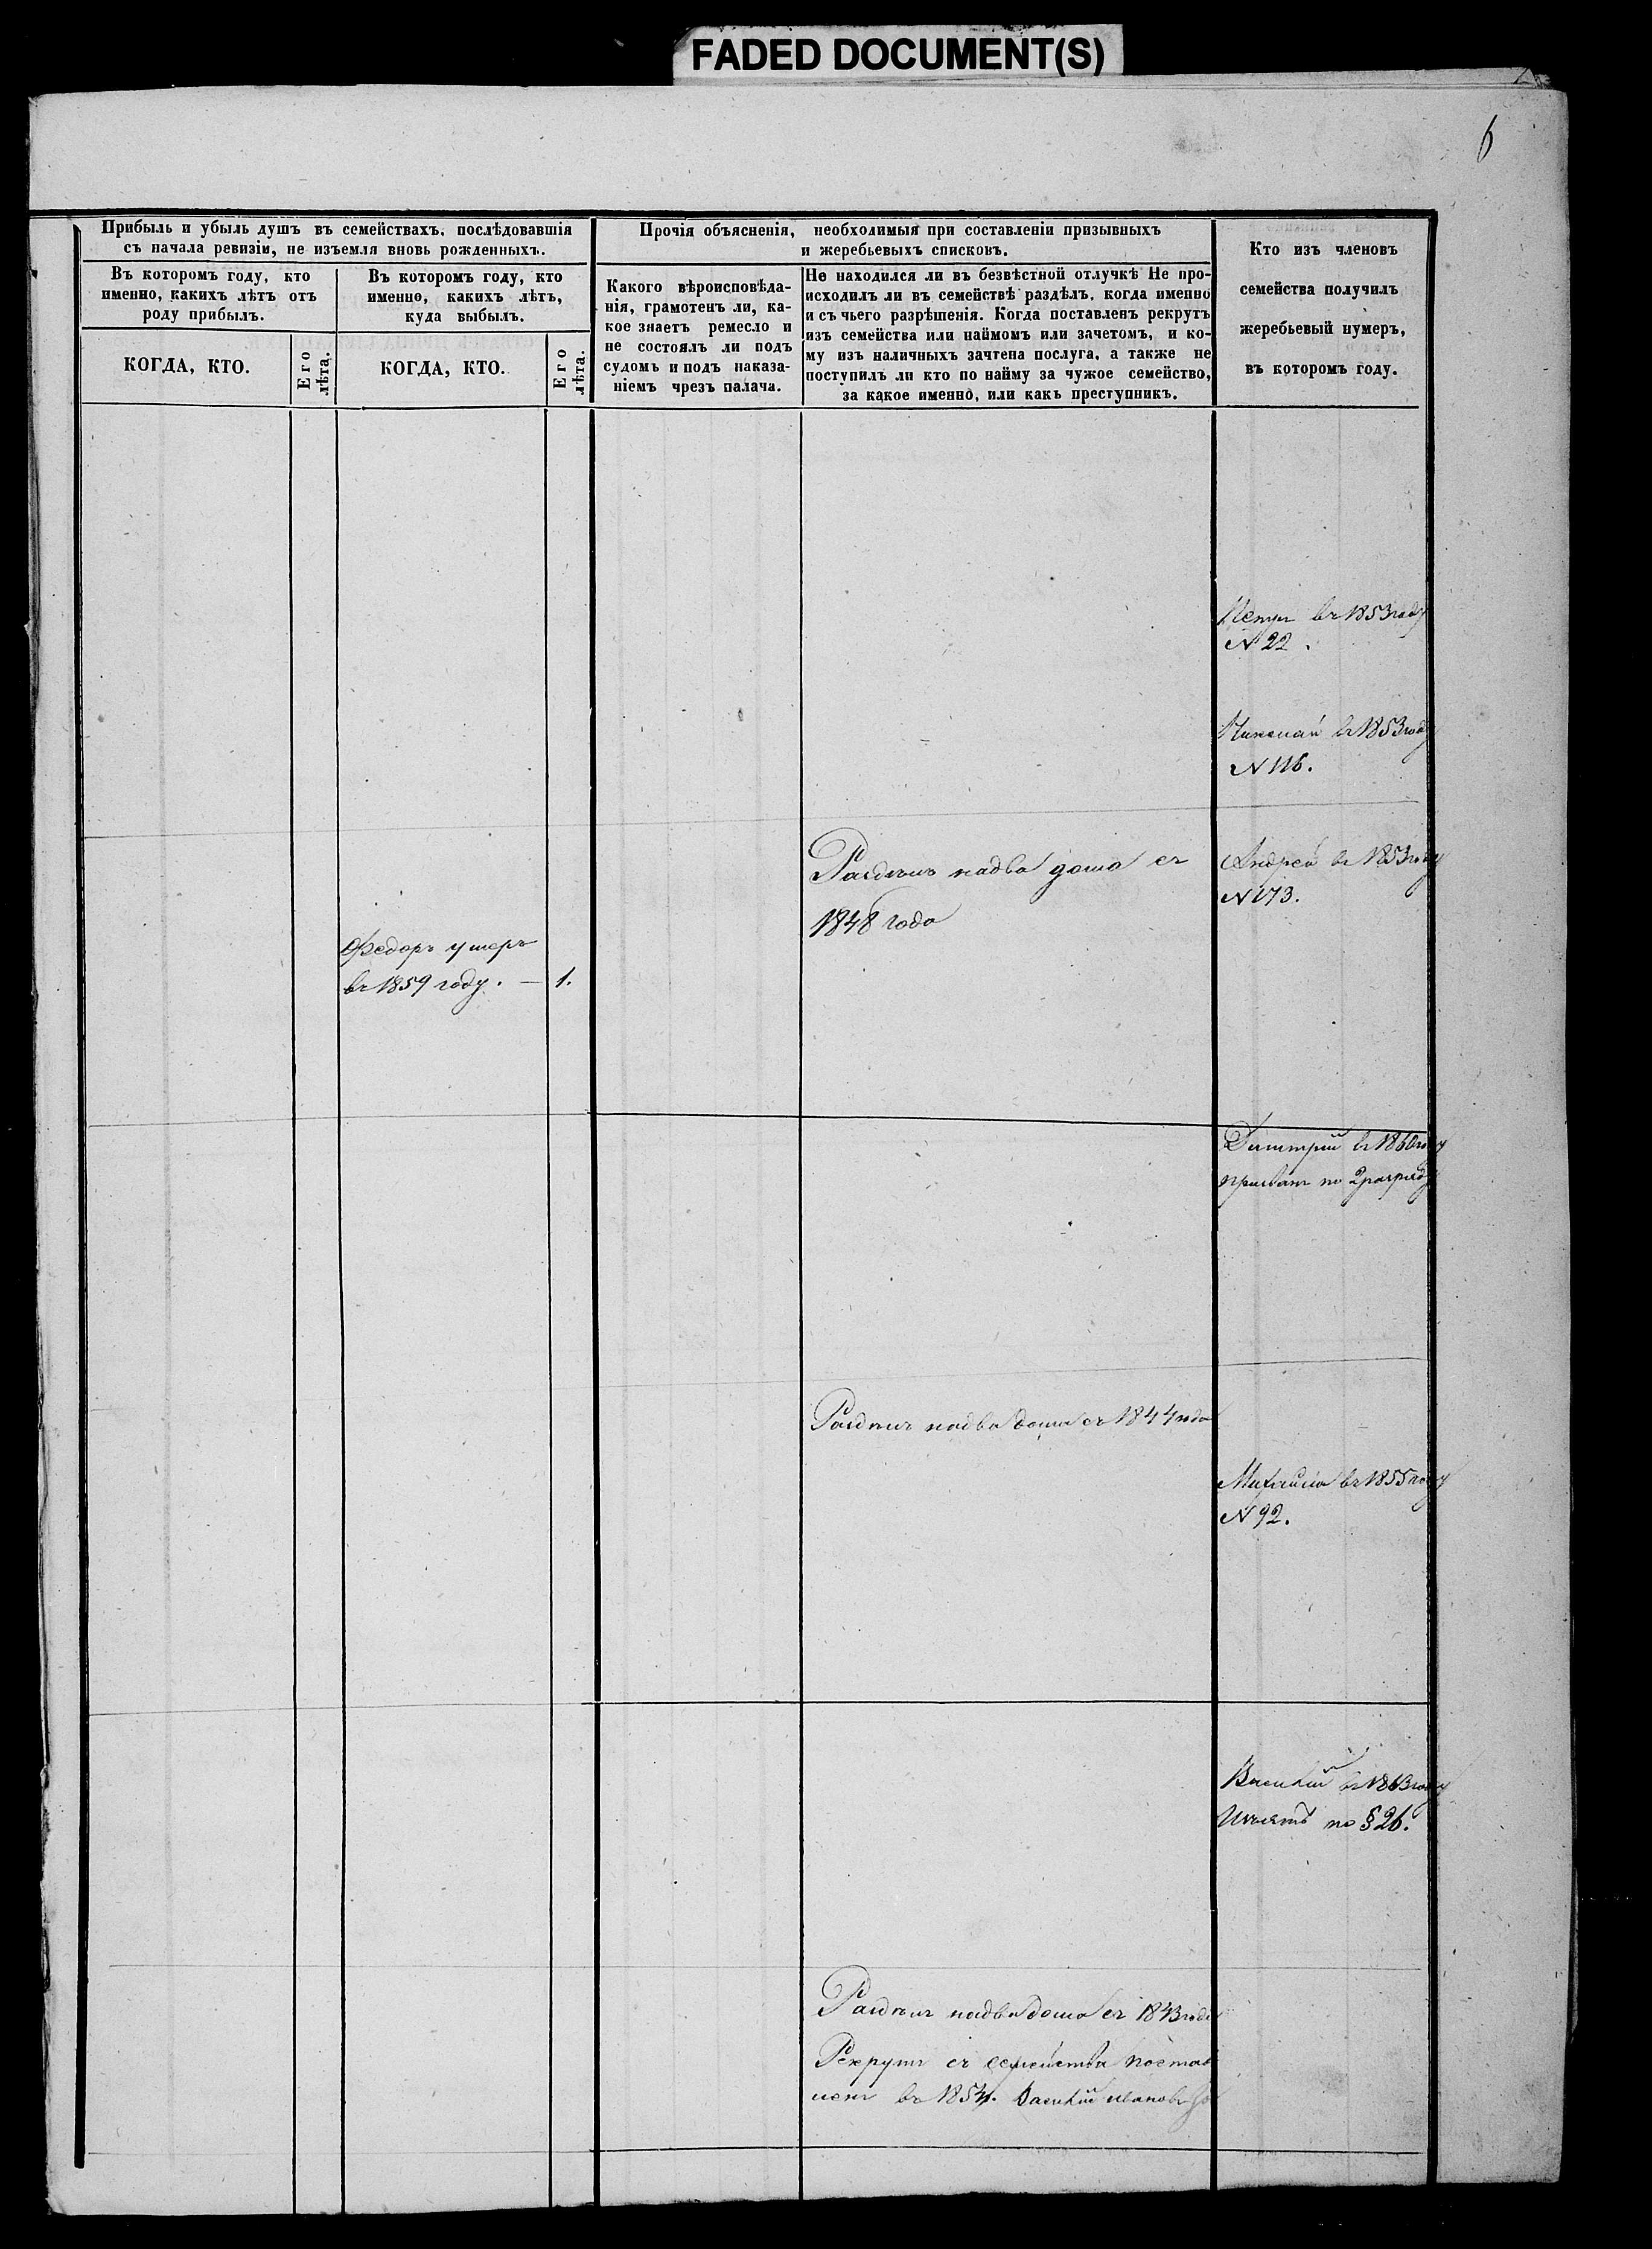 FADED DOCUMENT(S)
6
Прибыль и убыль душъ въ семействахъ, послѣдовавшія
съ начала ревизіи, не изъемля вновь рожденныхъ.
Въ которомъ году, кто
именно, какихъ лѣтъ отъ
роду прибылъ.
КОГДА, КТО.
Его
лѣта.
Въ которомъ году, кто
именно, какихъ лѣтъ,
куда выбылъ.
КОГДА, КТО.
Его
лѣта.
Прочія объясненія, необходимыя при составленіи призывныхъ
и жеребьевыхъ списковъ.
Какого вѣроисповѣда-
нія, грамотенъ ли, ка-
кое знаетъ ремесло и
не состоялъ ли подъ
судомъ и подъ наказа-
ніемъ чрезъ палача.
Не находился ли въ безвѣстной отлучкѣ Не про-
исходилъ ли въ семействѣ раздѣлъ, когда именно
и съ чьего разрѣшенія. Когда поставленъ рекрутъ
изъ семейства или наймомъ или зачетомъ, и ко-
му изъ наличныхъ зачтена послуга, а также не
поступилъ ли кто по найму за чужое семейство,
за какое именно, или какъ преступникъ.
Кто изъ членовъ
семейства получилъ
жеребьевый нумеръ,
въ которомъ году.
Петръ въ 1853 году
N 22.
Николай въ 1853 году
N 116.
Раздѣлъ надва дома съ
1848 года
Андрей въ 1853 году
N 173.
Федоръ умеръ
въ 1859 году. — 1.
Дмитрій въ 1860 году
призванъ по 2 разряду
Раздѣлъ надва дома съ 1844 года
Михайла въ 1855 году
N 92.
Василій въ 1863 году
Изъятъ по § 26.
Раздѣлъ надва дома съ 1843 года
Рекрутъ съ семейства постав
ленъ въ 1854. Василій Ивановъ